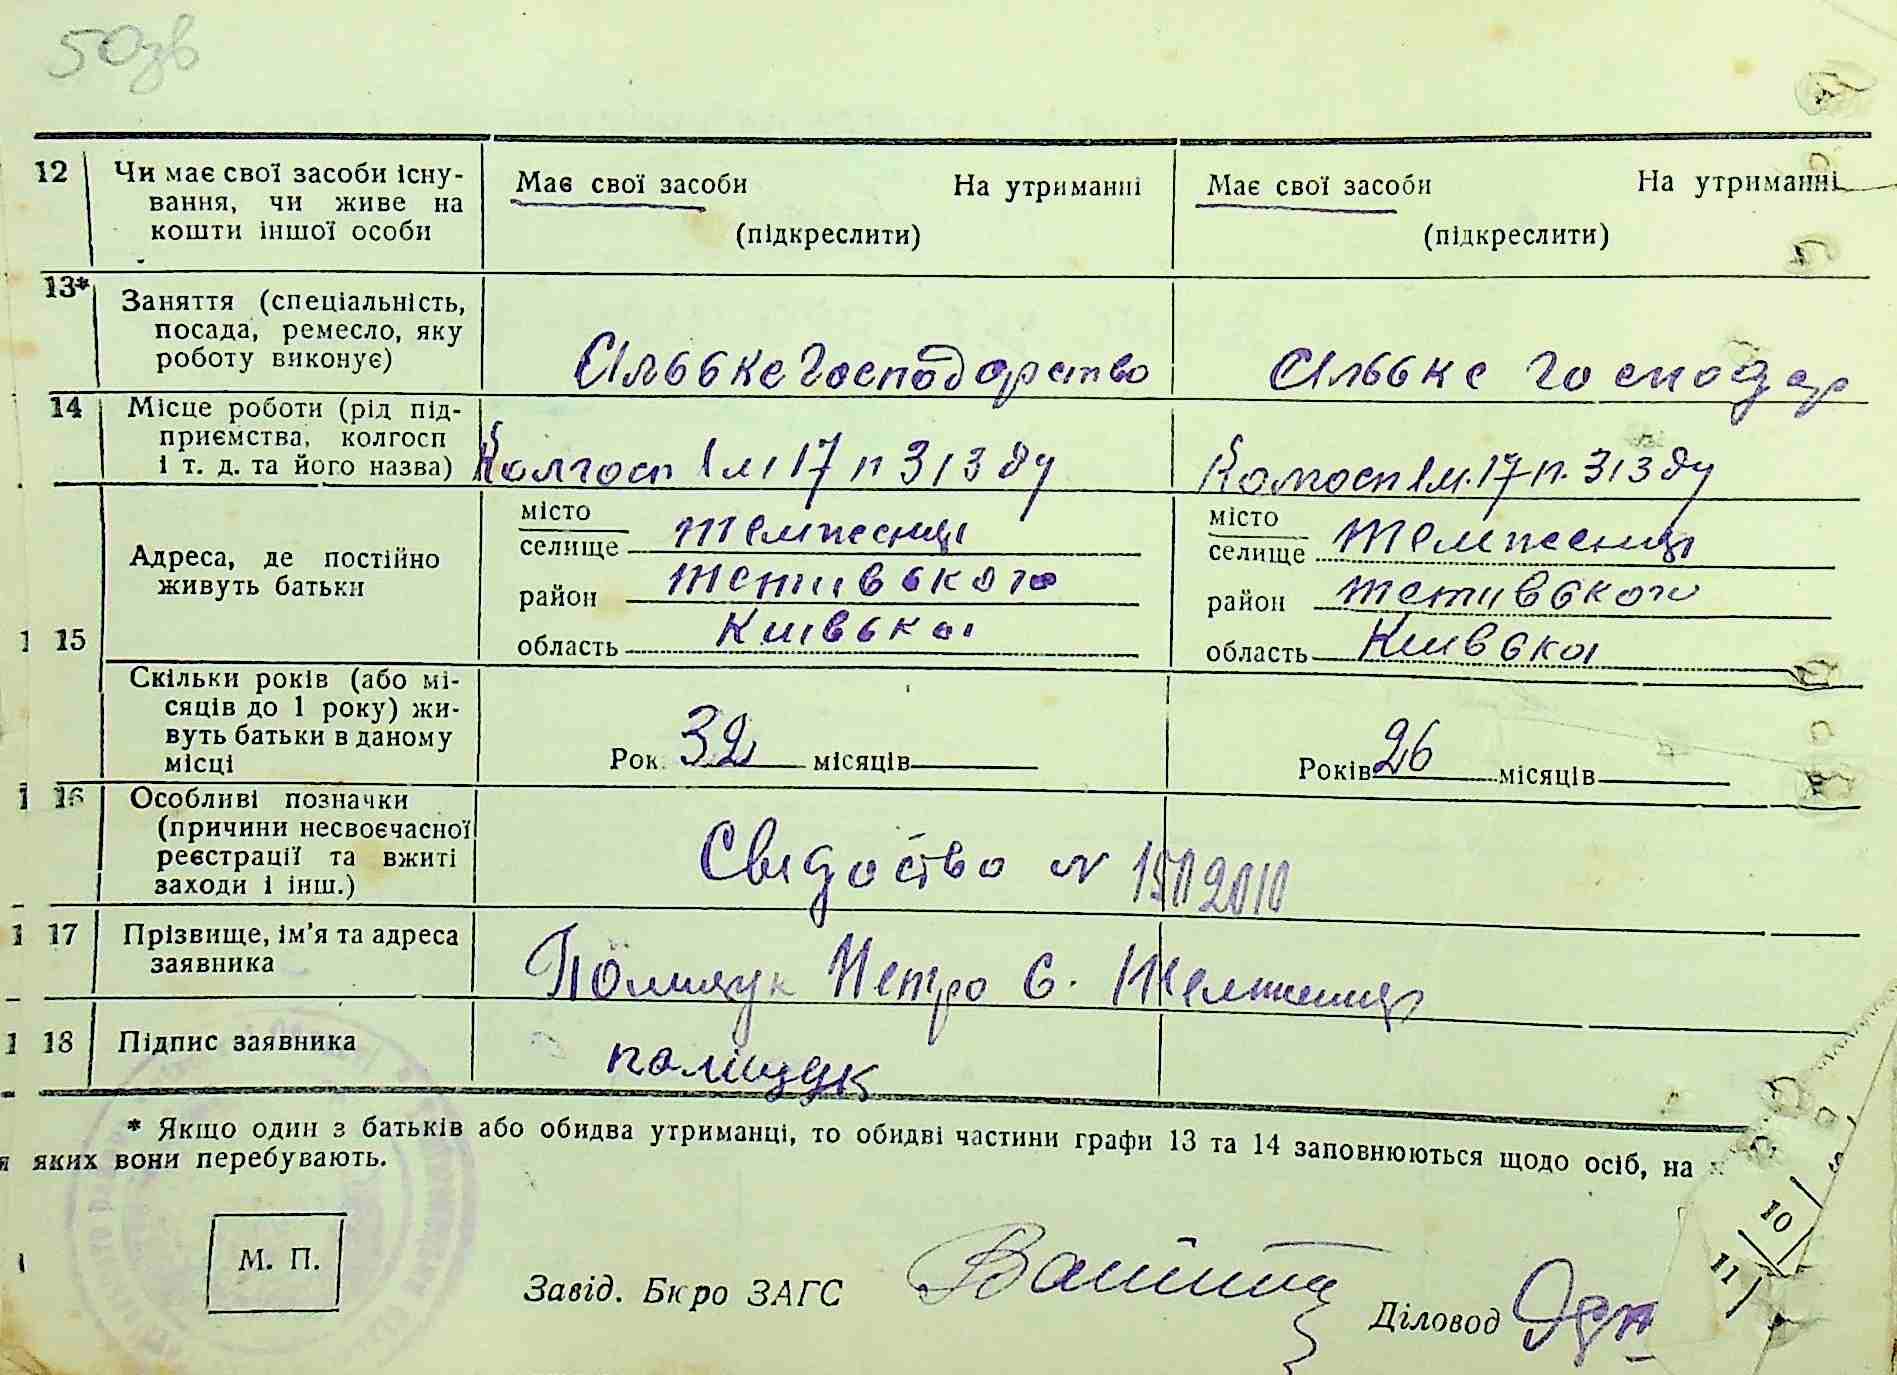 50зв
12 Чи має свої засоби існу-
вання, чи живе на
кошти іншої особи
Має свої засоби На утриманні
(підкреслити)
Має свої засоби На утриманні
(підкреслити)
13* Заняття (спеціальність,
посада, ремесло, яку
роботу виконує)
Сільське господарство
Сільське господар
14 Місце роботи (рід під-
приємства, колгосп
і т. д. та його назва)
Колгосп ім 17 п зізду
Колгосп ім. 17 п. зізду
15 Адреса, де постійно
живуть батьки
місто
селище
район Тетивського
область Київська
місто
селище
район Тетивського
область Київська
Скільки років (або мі-
сяців до 1 року) жи-
вуть батьки в даному
місці
Рок. 32 місяців
Років 26 місяців
16 Особливі позначки
(причини несвоєчасної
реєстрації та вжиті
заходи і інш.)
Свідоство №
17 Прізвище, ім'я та адреса
заявника
Поліщук Петро с.
18 Підпис заявника
поліщук
* Якщо один з батьків або обидва утриманці, то обидві частини графи 13 та 14 заповнюються щодо осіб, на
яких вони перебувають.
М. П.
Завід. Бюро ЗАГС
Діловод
10
11